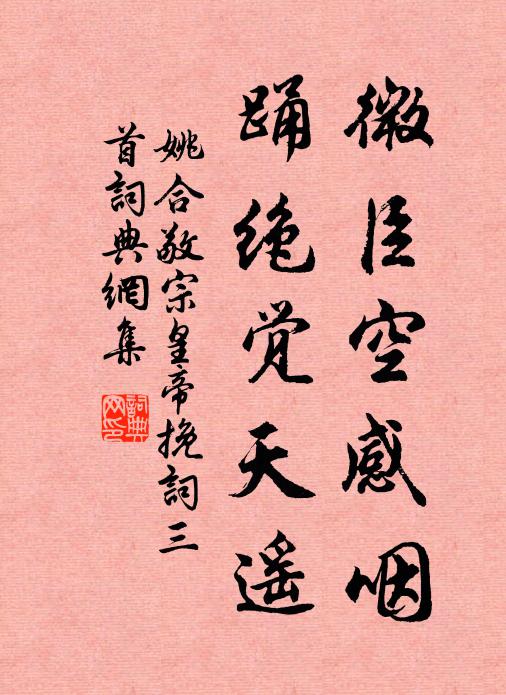 微臣空感咽
踊绝觉天遥
姚合敬宗皇帝挽詞三
首詞典網集
詞典
网印